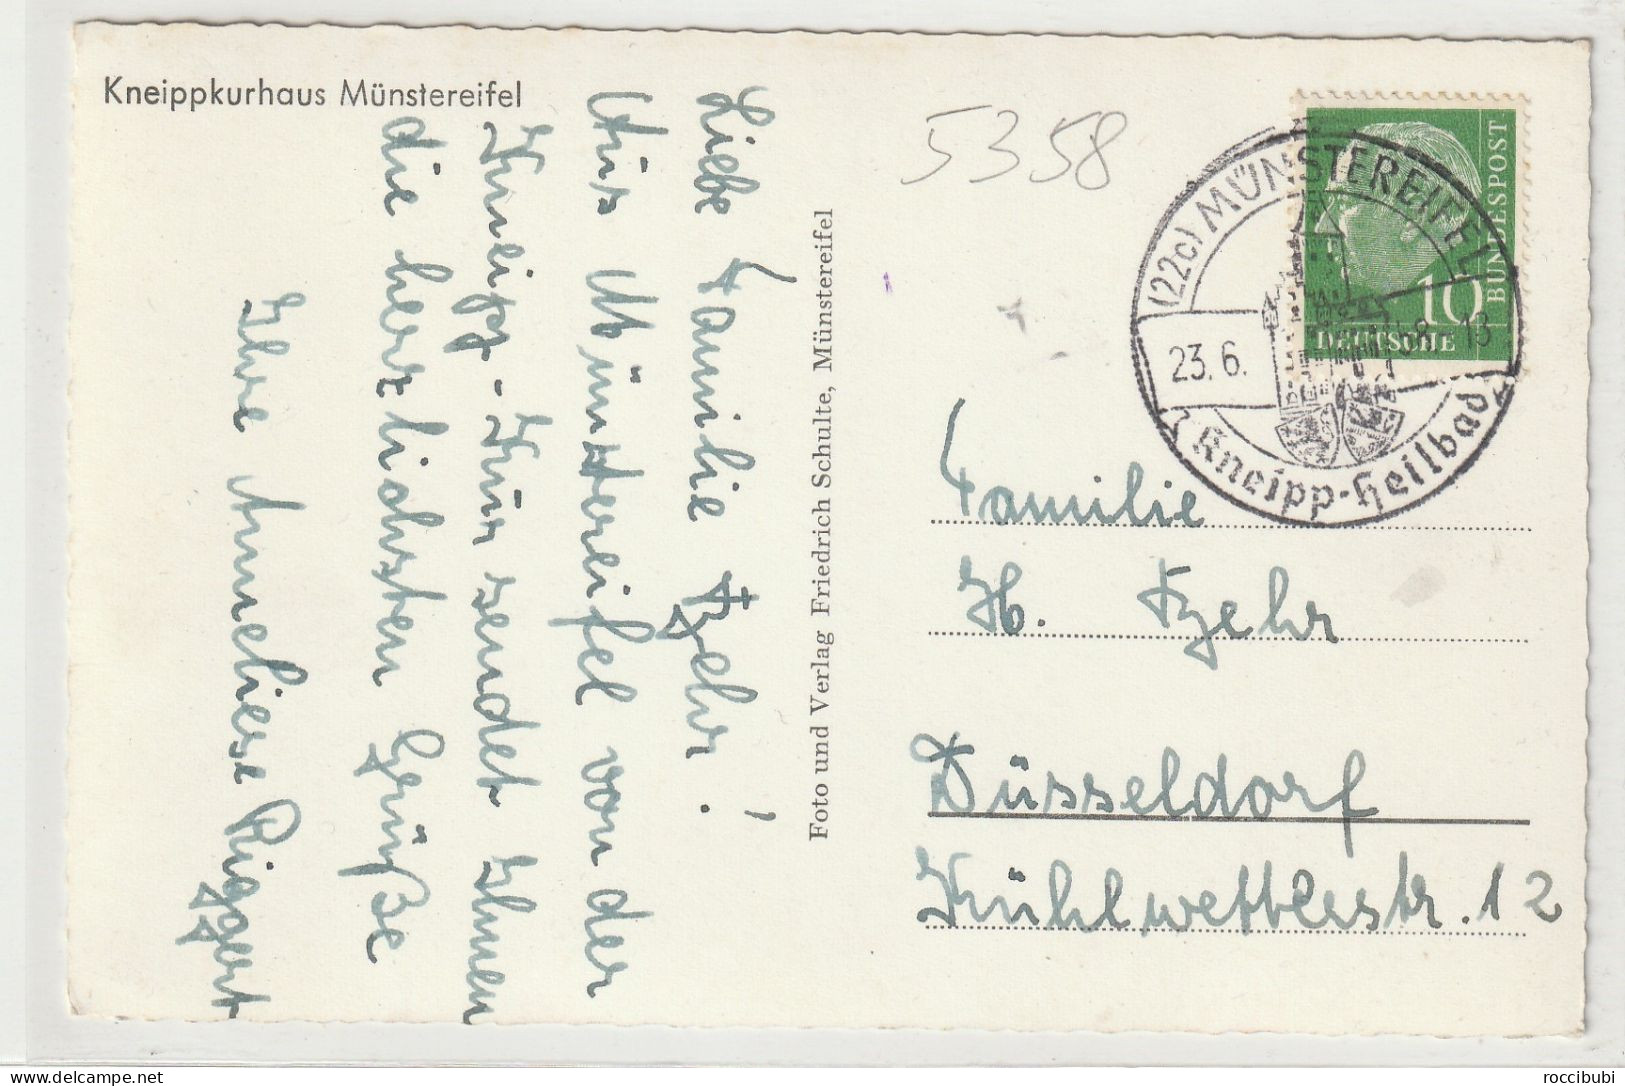 Kneippkurhaus Münstereifel
Liebe Familie Fzehr!
Aus Münstereifel von der
Kneipp-Kur sendet Ihnen
die herzlichsten Grüße
Ihre Anneliese Riggert
Foto und Verlag Friedrich Schulte, Münstereifel
5358
(22c) MÜNSTEREIFEL
23.6.58.-13
Kneipp-Heilbad
DEUTSCHE
BUNDESPOST
10
Familie
H. Fzehr
Düsseldorf
Kühlwetterstr. 12
delcampe.net
roccibubi